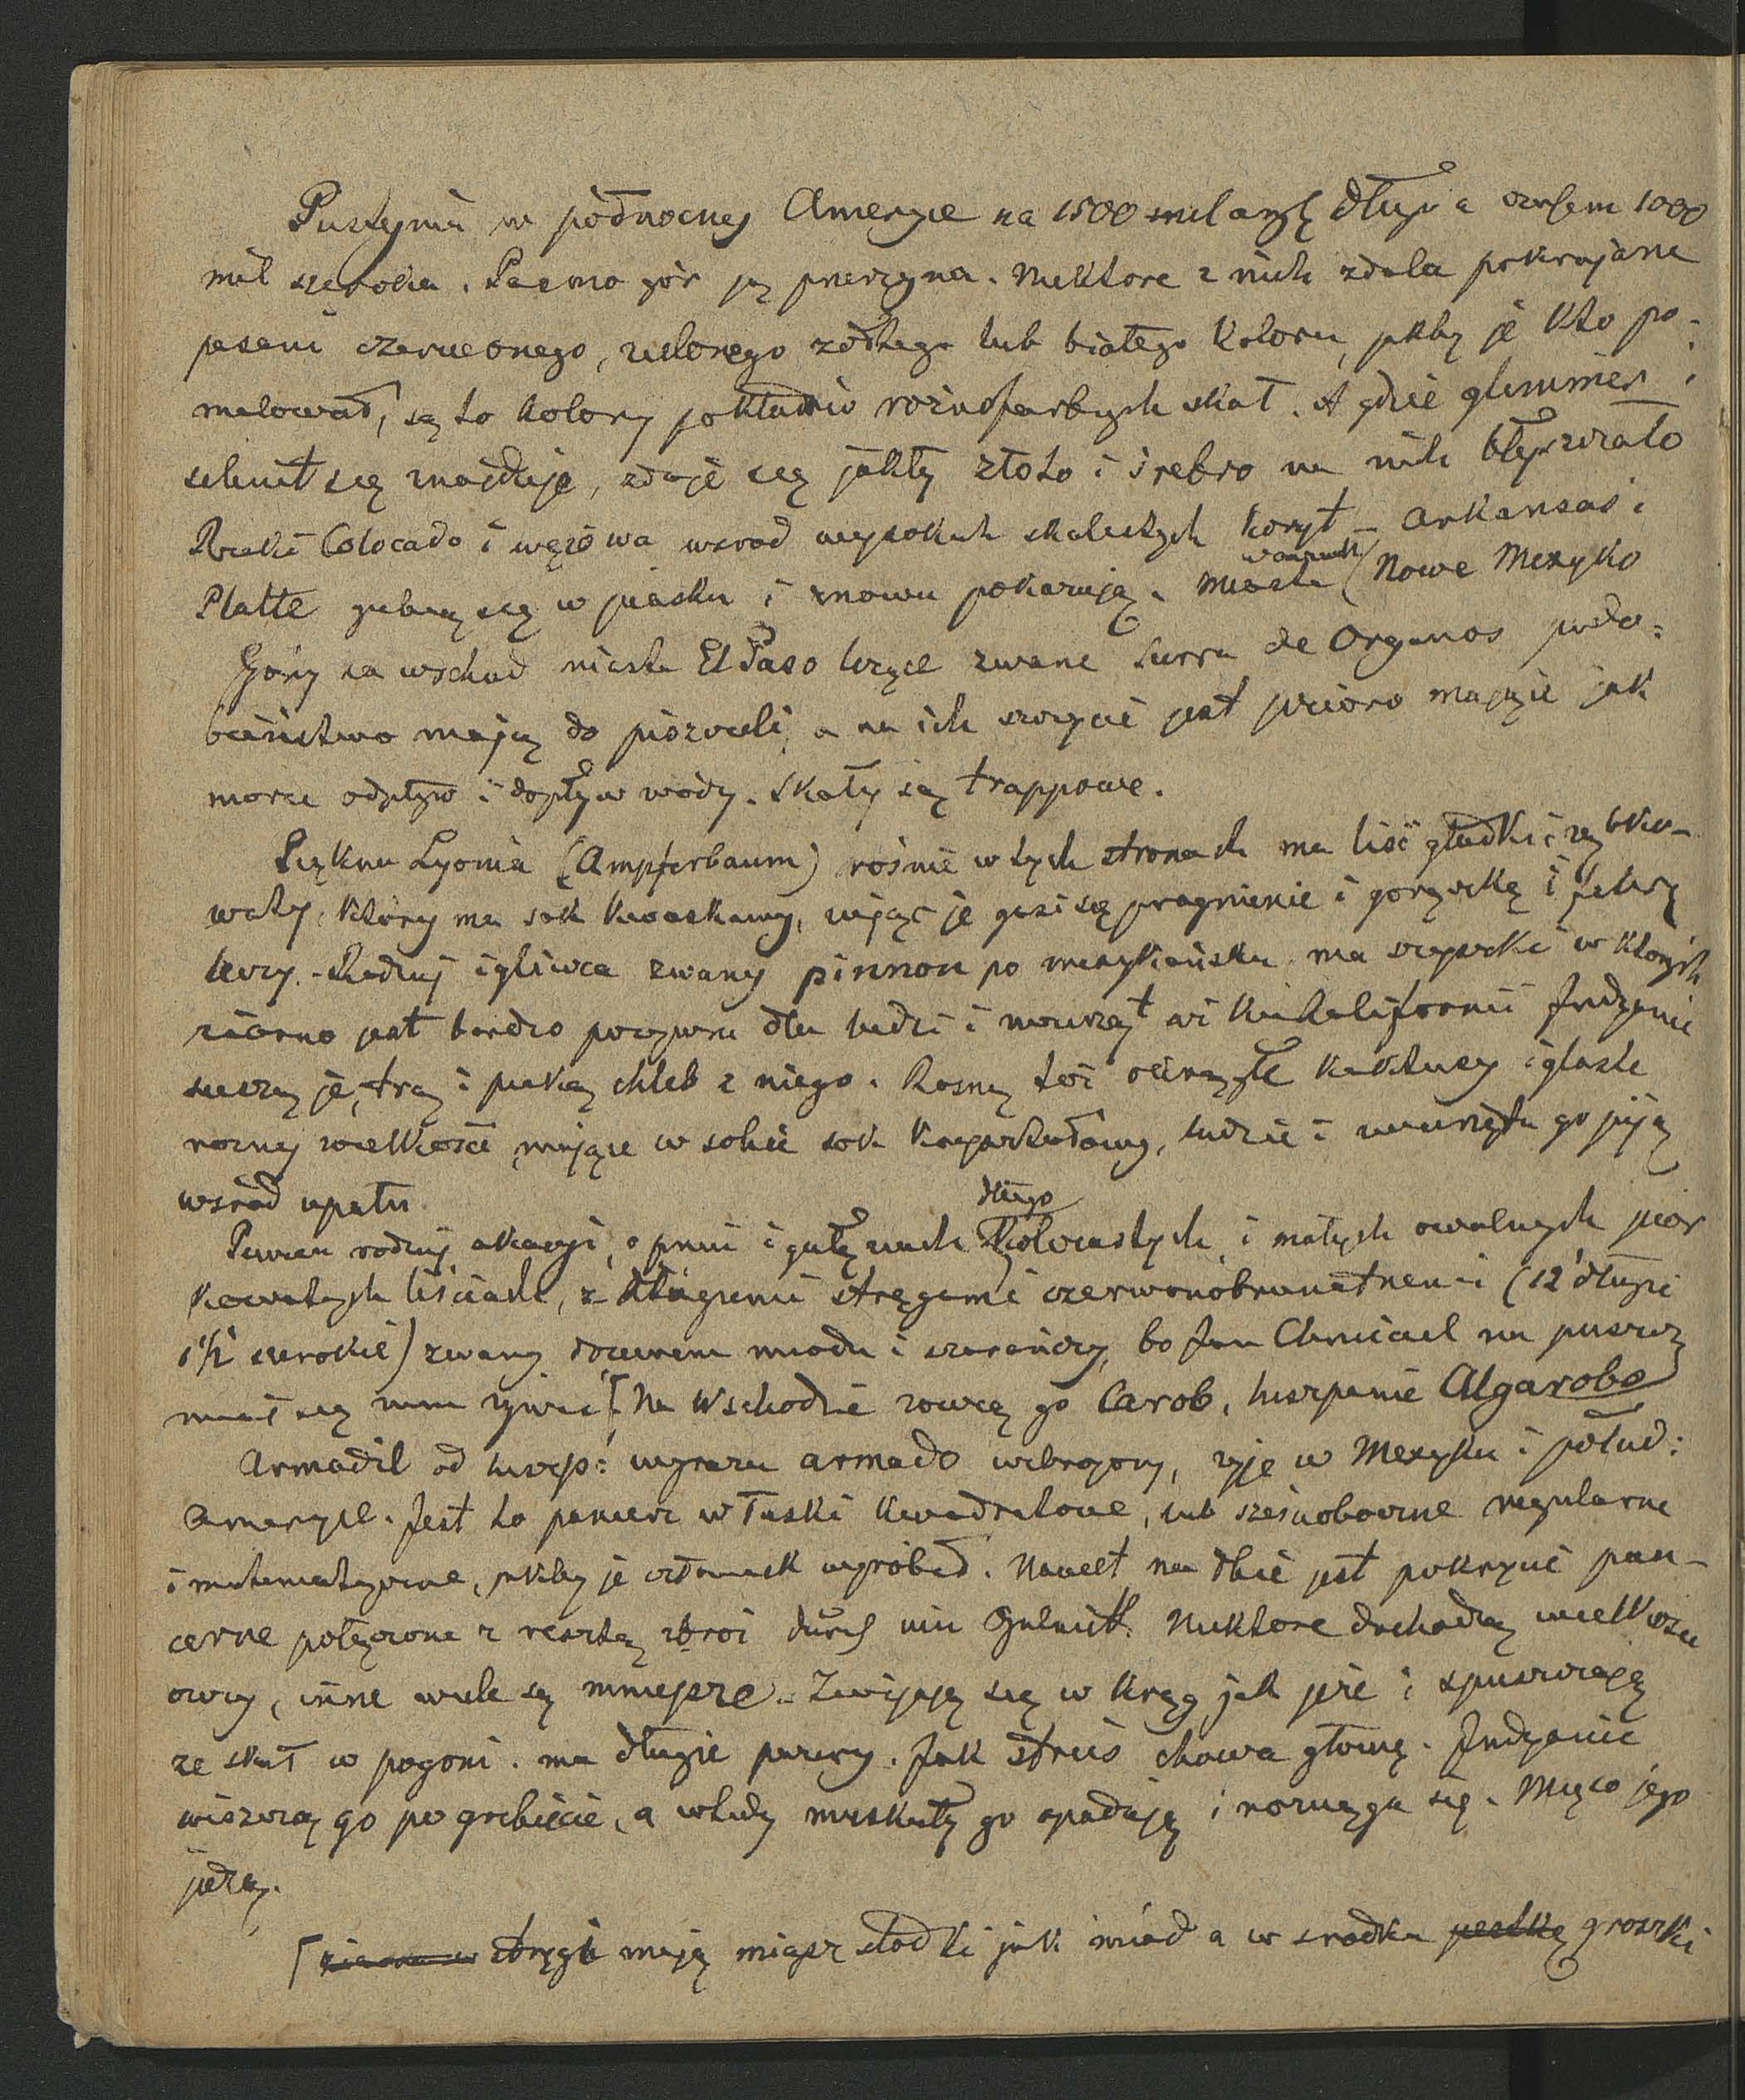 Pustynia w północnej Ameryce na 1500 mil ang. długa a czasem 1000
mil szeroka. Pasmo gór ją przerzyna. Niektóre z nich zdala pokrajane
pasami czerwonego, zielonego żółtego lub białego koloru, jakby je kto po-
malował, są to kolory pokładów różnofarbych skał. A gdzie glimmer i
selenit się znajduje, zdaje się jakby złoto i srebro na nich błyszczało
Rzeki Colocado i wężowa wsrod wysokich skalistych koryt – Arkansas i
Platte gubią się w piasku i znowu pokazują. Miasta (Nowe Mexyko
Góry na wschod miasta El Paso leżące zwane Sierra de Organos podo=
bieństwo mają do piszczeli, a na ich szczycie jest jezioro mające jak
morze odpływ i dopływ wody. Skały są trappowe.
Piękna Lyonia (Ampferbaum) rośnie w tych stronach ma liść gładki i ząbko-
waty, który ma sok kwaskawy, żując je gasi się pragnienie i gorączkę i febrę
leczy. – Rodzaj igliwca zwany pinnon po mexykańsku ma szyszki w których
ziarno jest bardzo pożywne dla ludzi i zwierząt w Kalifornii Indyanie
suszą je, trą i pieką chleb z niego. Rosną też okrągłe kaktusy iglaste
roznej wielkości mające w sobie sok kryształowy, ludzie i zwierzęta go piją
wsród upału
długo
Pewien rodzaj akacyi, o pniu i gałęziach kolczastych, i małych owalnych pior
kowatych liściach, z długiemi stręgami czerwonobrunatnemi (12' długie
1½' szerokie) zwany drzewem miodu i szarańczy, bo Jan Chrzciciel na puszczy
miał się niem żywić [Na Wschodzie zowią go Carob, hiszpanie Algarobo
Armadil od hiszp: wyrazu armado uzbrojony, żyje w Mexyku i połud:
Ameryce. Jest to pancerz w łuski kwadratowe, lub sześcioboczne regularne
i matematyczne, jakby je człowiek wyrobił. Nawet na łbie jest pokrycie pan-
cerne połączone z resztą zbroi durch ein Gelenk. Niektore dochodzą wielkości
owcy, inne wiele są mniejsze. – Zwijają się w krąg jak jeże i spuszczają
ze skał w pogoni. ma długie pazury. Jak struś chowa głowę. Indyanie
wieszczą go po grzbiecie, a wtedy muskuły go opadają i rozciąga się. Mięso jego
jedzą.
[ strągi mają miąsz słodki jak miód a w srodku pestkę groszki